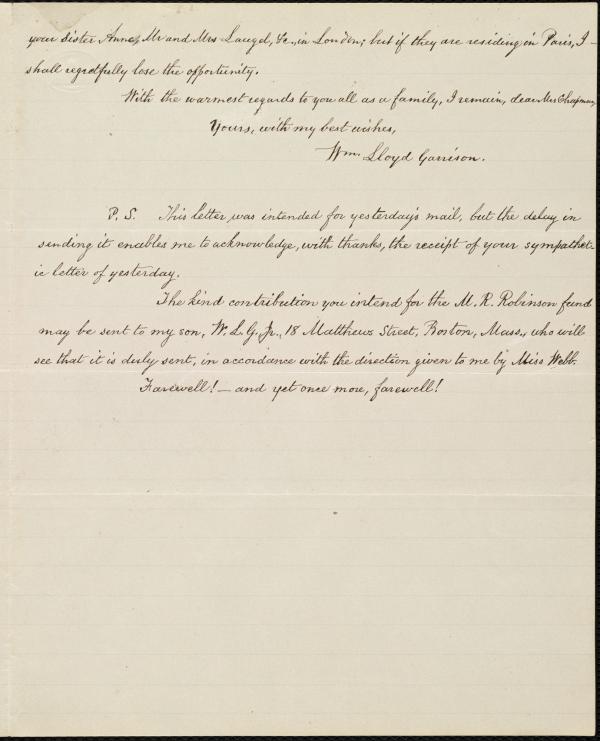 your sister Anne, Mr and Mrs Laugel, &c., in London; but if they are residing in Paris, I
shall regretfully lose the opportunity.
With the warmest regards to you all as a family, I remain, dear Mrs Chapman,
Yours, with my best wishes,
Wm. Lloyd Garrison.
P. S. This letter was intended for yesterday's mail, but the delay in
sending it enables me to acknowledge, with thanks, the receipt of your sympathet-
ic letter of yesterday.
The kind contribution you intend for the M. R. Robinson fund
may be sent to my son, W. L. G. Jr., 18 Matthews Street, Boston, Mass., who will
see that it is duly sent, in accordance with the direction given to me by Miss Webb.
Farewell! — and yet once more, farewell!